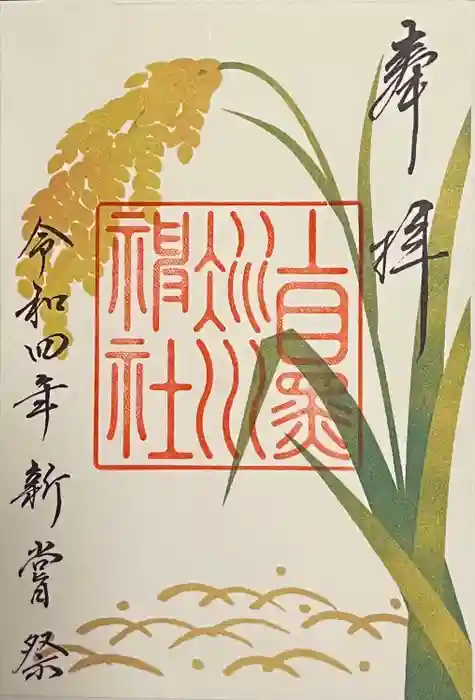 奉拝
上目黒
氷川
神社
令和四年 新嘗祭